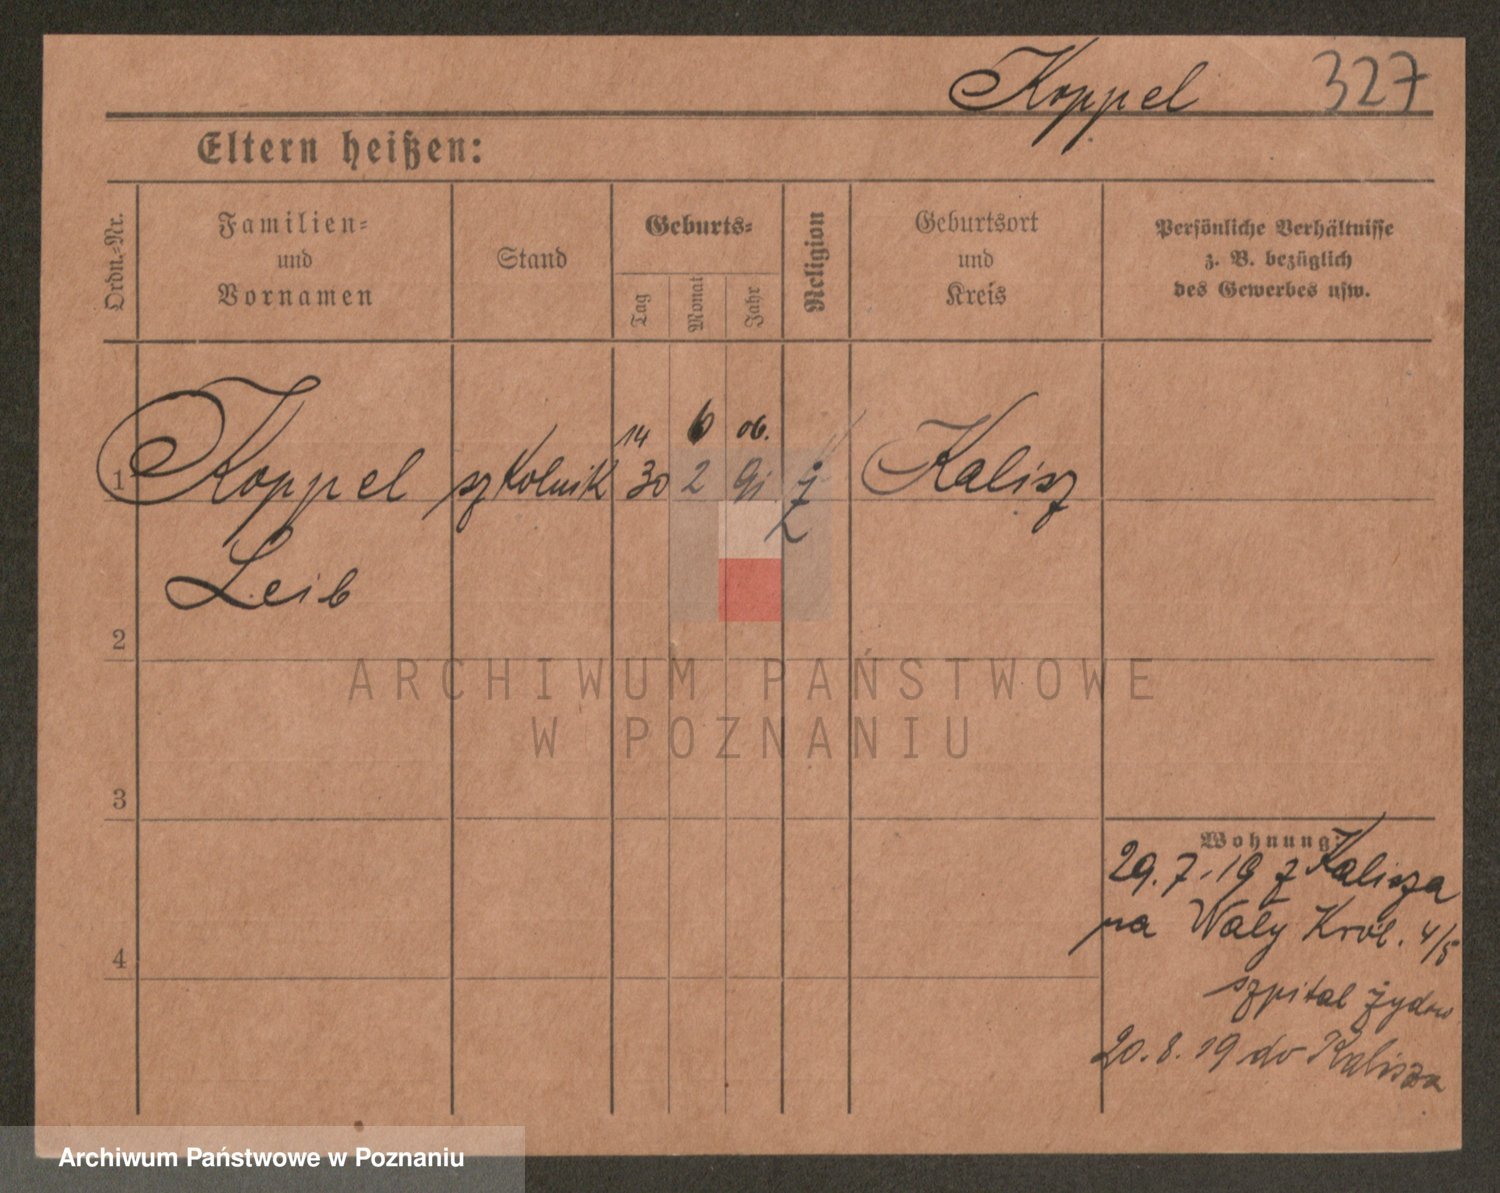 Koppel 327
Eltern heißen:
Ordn.-Nr.
Familien-
und
Vornamen
Stand
Geburts-
Tag
Monat
Jahr
Religion
Geburtsort
und
Kreis
Persönliche Verhältnisse
z. B. bezüglich
des Gewerbes usw.
14 6 06.
1 Koppel szkolnik 30 2 ż Kalisz
Leib
2
ARCHIWUM PAŃSTWOWE
W POZNANIU
3
Wohnung:
29.7.19 z Kalisza
na Wały Król. 4/5
4
szpital żydow
20.8.19 do Kalisza
Archiwum Państwowe w Poznaniu